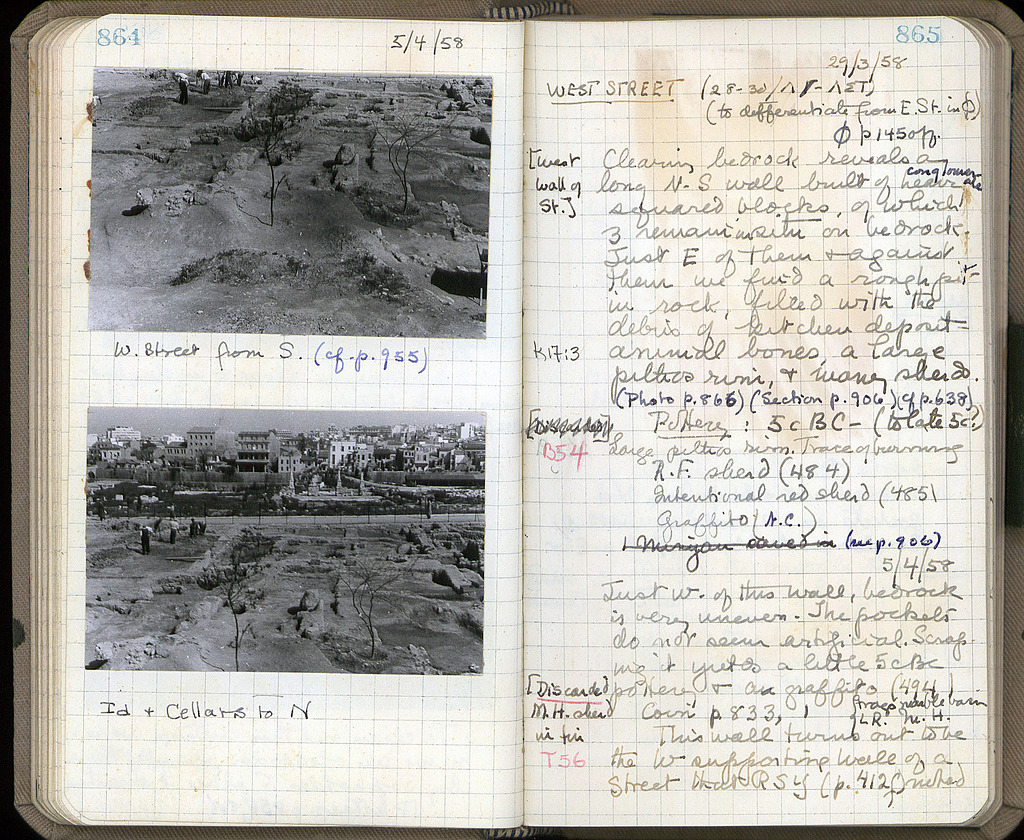 864
5/4/58
W. Street from S. (cf. p. 955)
Id + Cellars to N
865
29/3/58
WEST STREET (28-30/ΛΓ-ΛΣΤ)
(to differentiate from E. St. in Φ)
Φ p 145 off.
[West wall of St.]
Clearing bedrock reveals a
long N-S wall built of conglomerate
squared blocks, of which
3 remain in situ on bedrock.
Just E of them & against
them we find a rough pit
in rock, filled with the
debris of kitchen deposit -
K17:3
animal bones, a large
pithos rim, & many sherds.
(Photo p. 866) (Section p. 906) (cf p. 638)
Pottery: 5c BC - (to late 5c?)
B54
Large pithos rim. Trace of burning
R.F. sherd (484)
Intentional red sherd (485)
Graffito (N.C.)
(see p. 906)
5/4/58
Just W. of this wall, bedrock
is very uneven. The pockets
do not seem artificial. Scrap-
ing it yields a little 5c BC
[Discarded
pottery & a graffito (494)
M.H. sherd
Coin p 833, 1
frags marble basin
L.R. M.H.
in tin
This wall turns out to be
T56
the W supporting wall of a
Street that RSY (p. 412f) noted